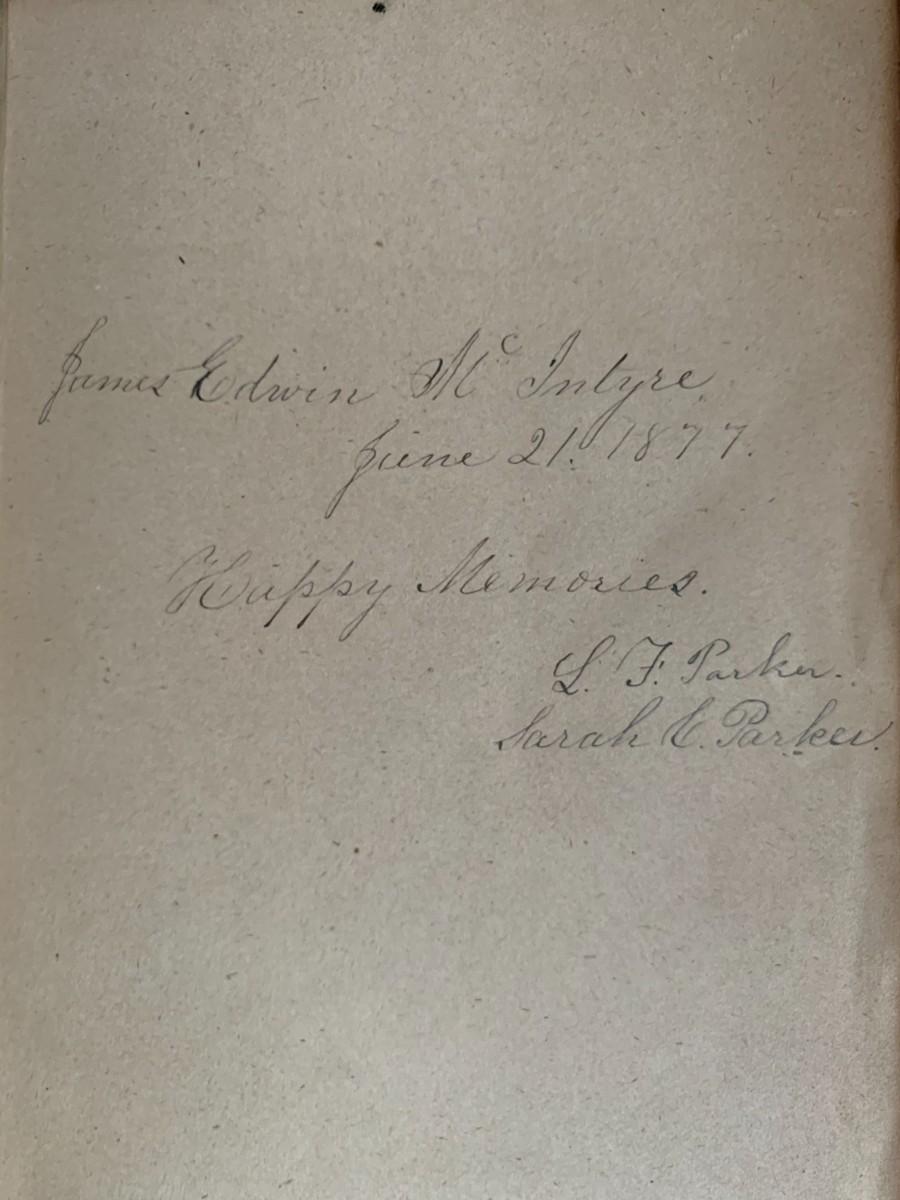 James Edwin Mc Intyre,
June 21. 1877.
Happy Memories.
L. F. Parker.
Sarah E. Parker.